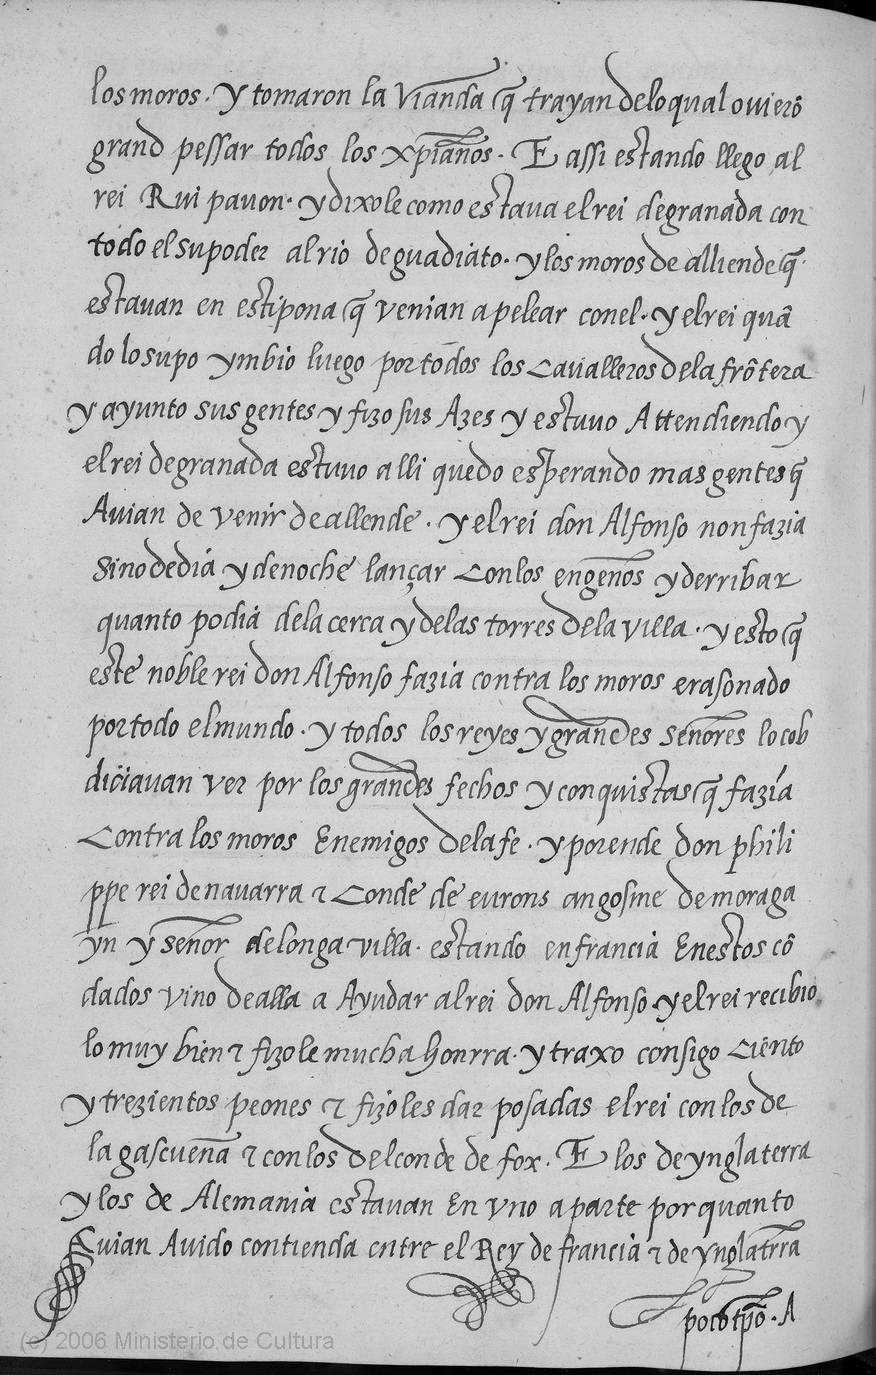 los moros · y tomaron la vianda q̃ trayan delo qual ovierõ
grand pessar todos los xp̃ianos · E assi estando llego al
rei Rui pavon · y dixole como estava el rei de granada con
todo el su poder al rio de guadiato · y los moros de alliende q̃
estavan en estipona q̃ venian a pelear conel · y el rei quã
do lo supo ymbio luego por todos los Cavalleros dela frõtera
y ayunto sus gentes y fizo sus Azes y estuvo Attendiendo y
el rei de granada estuvo alli quedo esperando mas gentes q̃
Avian de venir de allende · y el rei don Alfonso non fazia
sino de dia y de noche lançar Con los engenos y derribar
quanto podia dela cerca y delas torres dela villa · y esto q̃
este noble rei don Alfonso fazia contra los moros era sonado
por todo el mundo · y todos los reyes y grandes señores lo cob
diciavan ver por los grandes fechos y conquistas q̃ fazia
Contra los moros Enemigos dela fe · y porende don phili
ppe rei de navarra ⁊ Conde de eurons angosme de moraga
yn y señor de longa villa · estando en francia En estos cõ
dados vino de alla a Ayudar al rei don Alfonso y el rei recibio
lo muy bien ⁊ fizole mucha honrra · y traxo consigo Ciento
y trezientos peones ⁊ fizoles dar posadas el rei con los de
la gascueña ⁊ con los del conde de fox · E los de ynglaterra
y los de Alemania estavan En vno a parte por quanto
Avian Avido contienda entre el Rey de francia ⁊ de ynglatrra
poco tp̃o · A
(c) 2006 Ministerio de Cultura